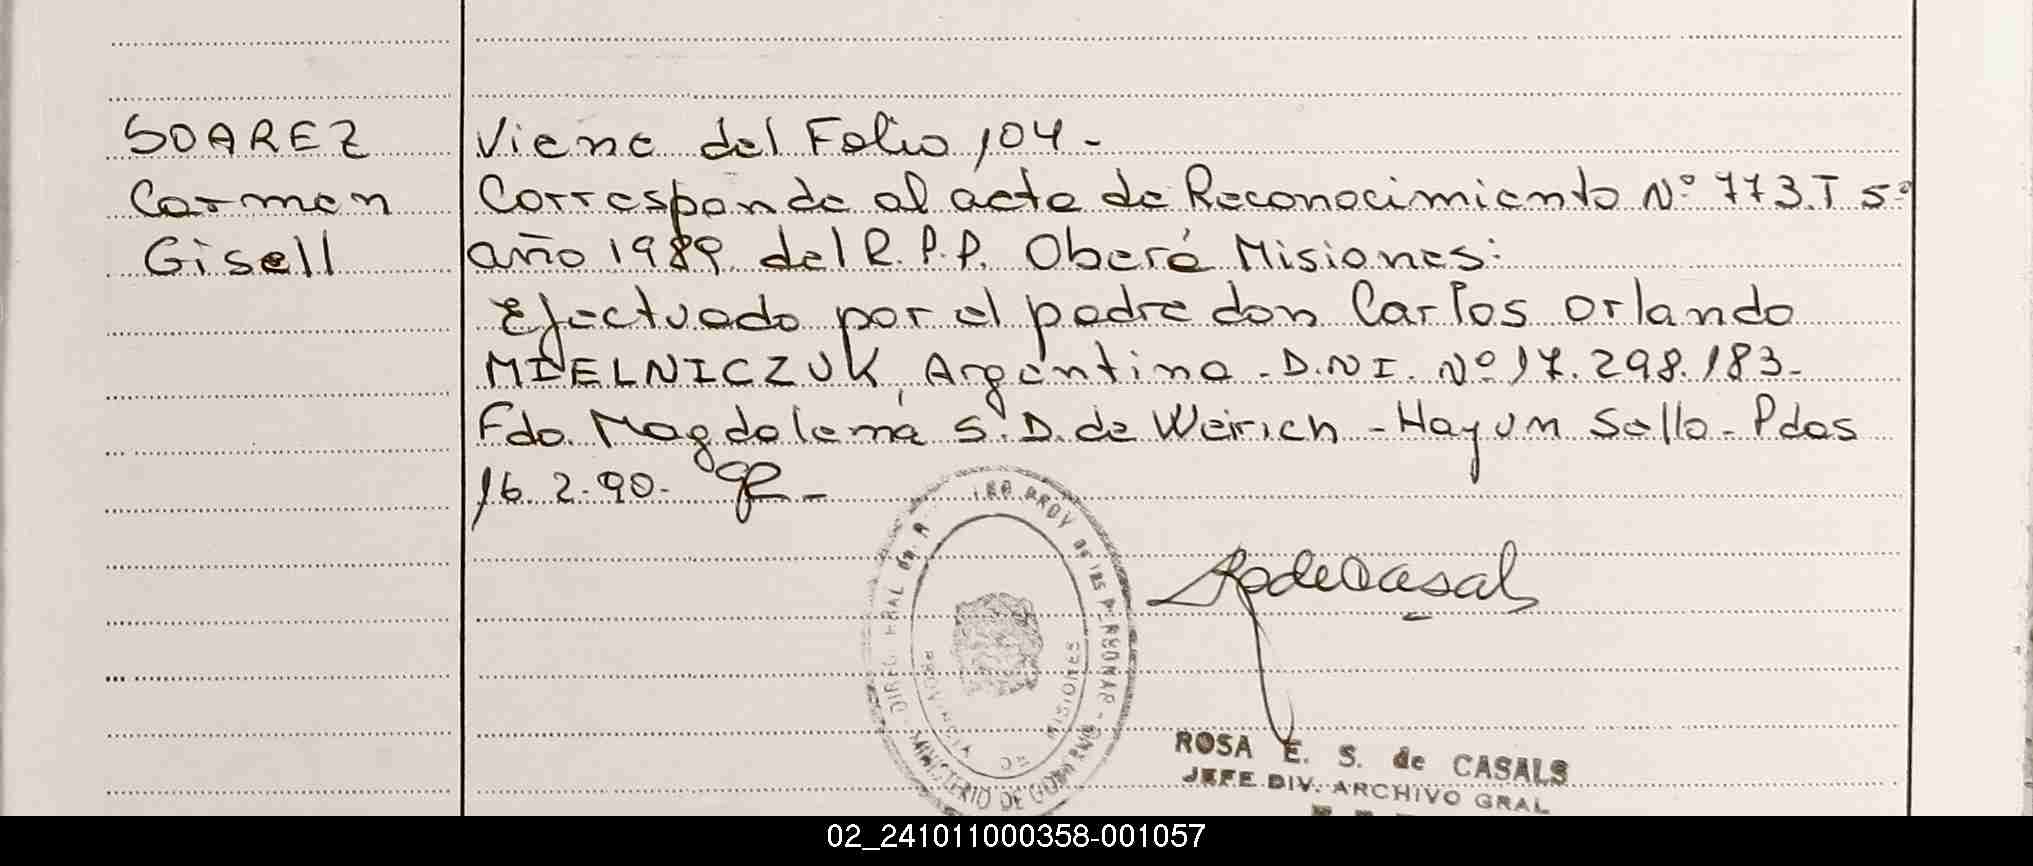 SOAREZ
Carmen
Gisell
Viene del Folio 104 -
Corresponde al acta de Reconocimiento Nº 773. T 5º
año 1989. del R. P. P. Oberá Misiones:
Efectuado por el padre don Carlos Orlando
MIELNICZUK, Argentino - D.N.I. Nº 17.298.183-
Fdo. Magdalena S. D. de Weirich - Hay un Sello - Pdas
16.2.90.
DIREC GRAL DE PROV DE LAS PERSONAS - MINISTERIO DE GOBIERNO
PROVINCIA DE MISIONES
ROSA E. S. de CASALS
JEFE DIV. ARCHIVO GRAL
02_241011000358-001057